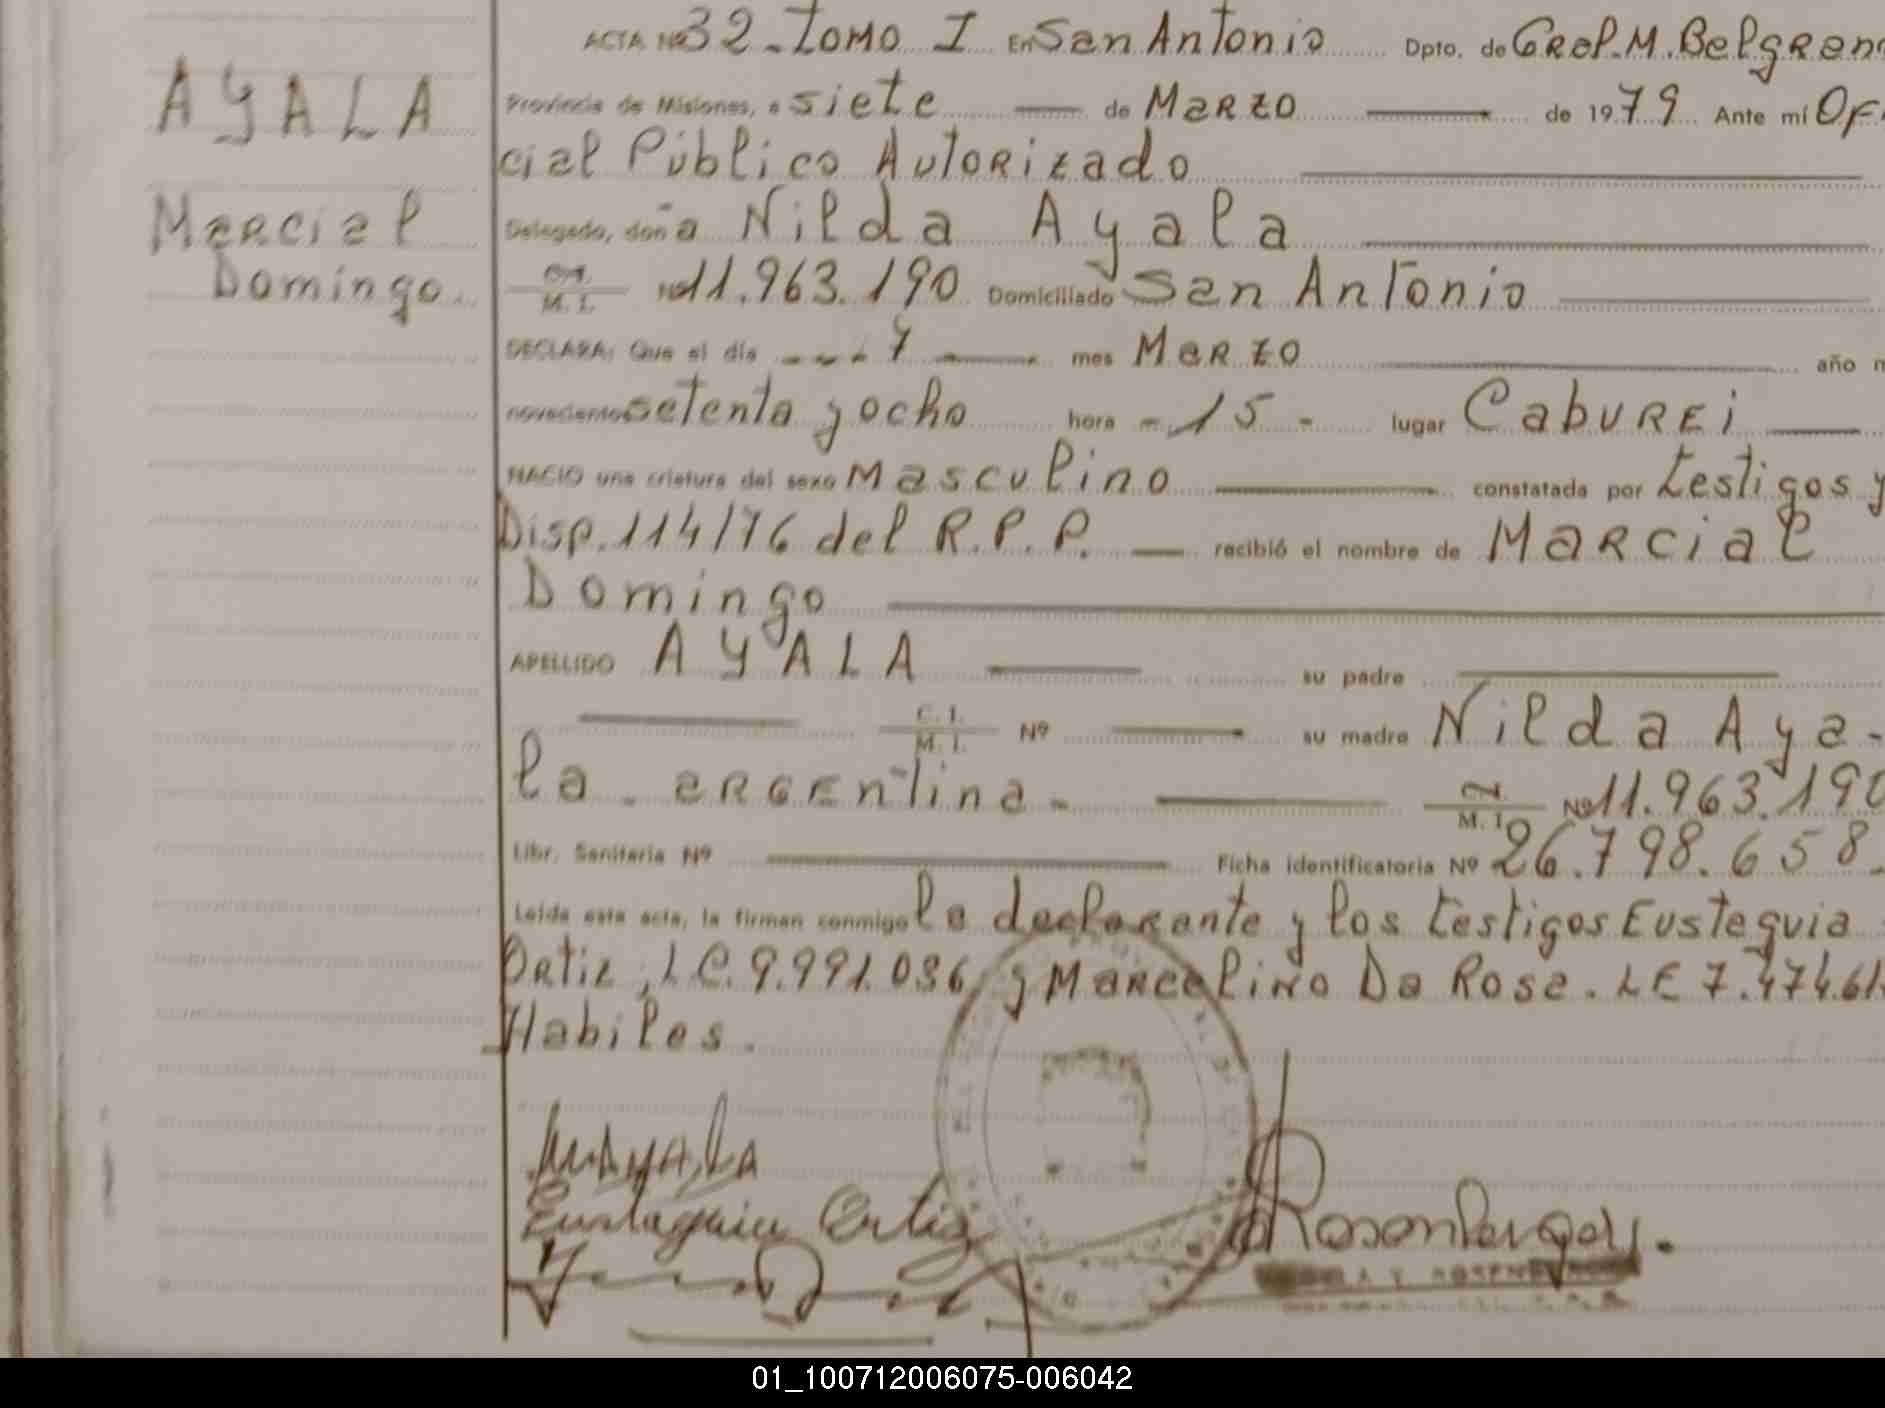 ACTA Nº 32 - Tomo I En San Antonio Dpto. de Gral. M. Belgran
AYALA
Provincia de Misiones, a siete de Marzo de 1979 Ante mí Ofi
cial Público Autorizado
Marcial
Delegado, doña Nilda Ayala
Domingo.
C.I. M. I. Nº 11.963.190 Domiciliado San Antonio
DECLARA: Que el día - - - 7 mes Marzo año m
novecientos setenta y ocho hora - 15 - lugar Cabureí
NACIO una criatura del sexo Masculino constatada por testigos y
Disp. 114/76 del R.P.P. recibió el nombre de Marcial
Domingo
APELLIDO AYALA su padre
C. I. M. I. Nº su madre Nilda Aya-
la - argentina - C.I. M. I. Nº 11.963.190
Libr. Sanitaria Nº Ficha identificatoria Nº 26.798.658.
Leída esta acta, la firman conmigo la declarante y los testigos Eustaquia
Ortiz, L.C. 9.991.036 y Marcelino Da Rosa. LE 7.474.61
Habiles.
Ayala
Eustaquia Ortiz
01_100712006075-006042